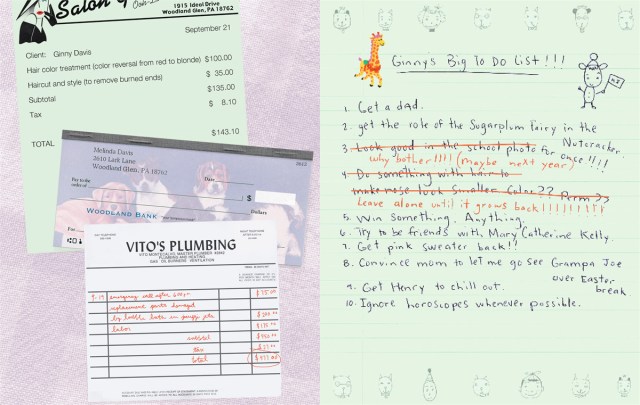 Salon
1915 Ideal Drive
Woodland Glen, PA 18762
September 21
Client: Ginny Davis
Hair color treatment (color reversal from red to blonde) $100.00
Haircut and style (to remove burned ends) $ 35.00
Subtotal $135.00
Tax $ 8.10
TOTAL $143.10
Melinda Davis
2610 Lark Lane
Woodland Glen, PA 18762
Date
Pay to the
order of
$
Dollars
WOODLAND BANK
For
VITO'S PLUMBING
VITO MONTEGALDO, MASTER PLUMBER #2842
PLUMBING AND HEATING
GAS OIL BURNERS VENTILATION
9-19 emergency call after 5:00pm $75.00
replacement parts damaged
by bubble bath in jacuzzi jets
labor
subtotal
tax
total
Ginny's Big To Do List!!!
1. Get a dad.
2. get the role of the Sugarplum Fairy in the
Nutcracker.
3. Look good in the school photo for once!!!!
why bother!!!! (maybe next year)
4. Do something with hair to
make nose look smaller Color?? Perm??
Leave alone until it grows back!!!!!!!!!
5. Win something. Anything.
6. Try to be friends with Mary Catherine Kelly.
7. Get pink sweater back!!
8. Convince mom to let me go see Grampa Joe
over Easter
break
9. Get Henry to chill out.
10. Ignore horoscopes whenever possible.